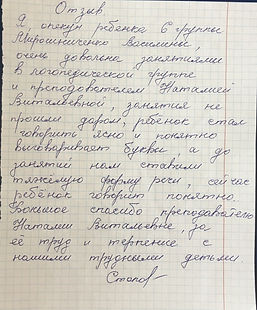 Отзыв
Я опекун ребёнка 6 группы
Мирошниченко Василины,
очень довольна занятиями
в логопедической группе
и преподователем Наталией
Витальевной, занятия не
прошли даром, ребёнок стал
говорить ясно и понятно
выговаривает буквы, а до
занятий нам ставили
тяжёлую форму речи, сейчас
ребёнок говорит понятно.
Большое спасибо преподователю
Наталии Витальевне, за
её труд и терпение с
нашими трудными детьми.